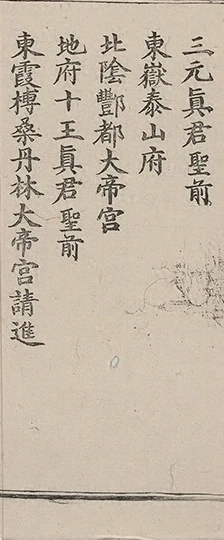 三元真君聖前
東嶽泰山府
北陰酆都大帝宮
地府十王眞君聖前
東霞榑桑丹林大帝宮請進